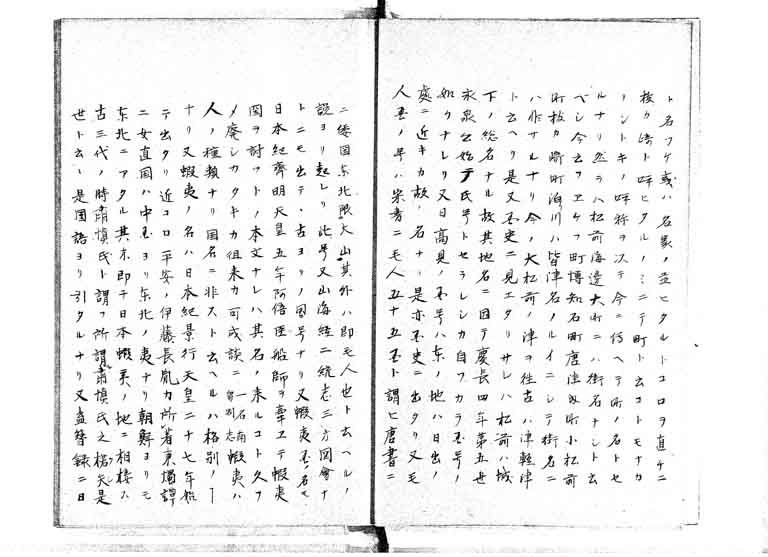 ト名フケ或ハ名家ノ並ヒタルトコロヲ直ケニ
枝カ崎ト呼ヒタルノミニテ町ト云コトモナカ
リシトキノ呼称ヲ以テ今ニ傳ヘテ町ノ名トセ
ルナリ然ラハ松前海邊大町ニハ街名ナシト云
ベシ今云フヱケフ町博知石町唐津内町小松前
町枝カ崎町泊川ハ皆津名ノルイニシテ街名ニ
ハ非サルナリ今ノ大松前ノ津ヲ往古ハ津軽津
ト云ヘリ是又国史ニ見エタリサレハ松前ハ城
下ノ総名ナル故其地名ニ因テ慶長四年第五世
永泉公始テ氏号トセラレシカ自フカラ国号ノ
如クナレリ又日高見ノ国号ハ东ノ地ハ日出ノ
處ニ近キカ故ノ名ナリ是亦国史ニ出タリ又毛
人国ノ号ハ宋書ニ毛人五十五国ト謂ヒ唐書ニ
ニ倭国东北限大山其外ハ即毛人也ト云ヘルノ
説ヨリ起レリ此号又山海経二統志三才図會ナ
トニモ出テ古ヨリノ国号ナリ又蝦夷国ノ名モ
日本紀齊明天皇五年阿倍臣船師ヲ率ヱテ蝦夷
国ヲ討フトノ本文ナレハ其名ノ来ルコト久フ
メ廃シカタキカ徂来カ可成談ニ一名南留別志蝦夷ハ
人ノ種類ナリ国名ニ非スト云ヘルハ格別ノ一
ナリ又蝦夷ノ名ハ日本紀景行天皇二十七年始
テ出タリ近コロ平安ノ伊藤長胤カ所著秉燭譚
ニ女直国ハ中国ヨリ东北ノ夷ナリ朝鮮ヨリモ
东北ニアタル其末即チ日本蝦夷ノ地ニ相接ス
古三代ノ時肅慎氏ト謂フ所謂肅慎氏之楛矢是
世ト云ー是国語ヨリ引タルナリ又盍簪録ニ日